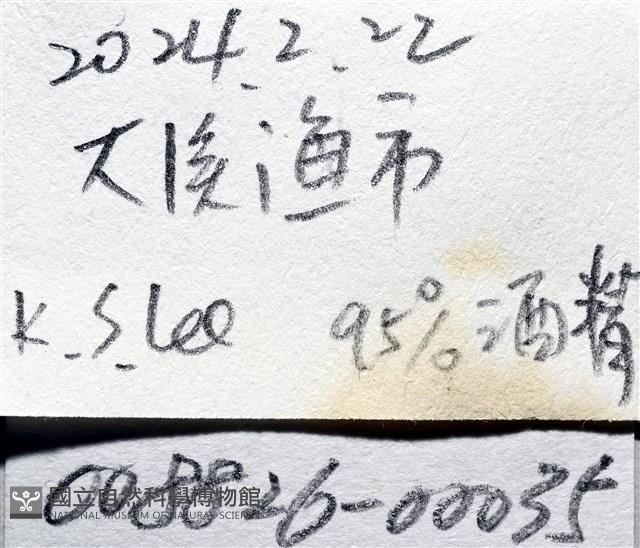 2024.2.22
大溪漁市
K.S.Lee 95% 酒精
008826-00035
國立自然科學博物館
NATIONAL MUSEUM OF NATURAL SCIENCE